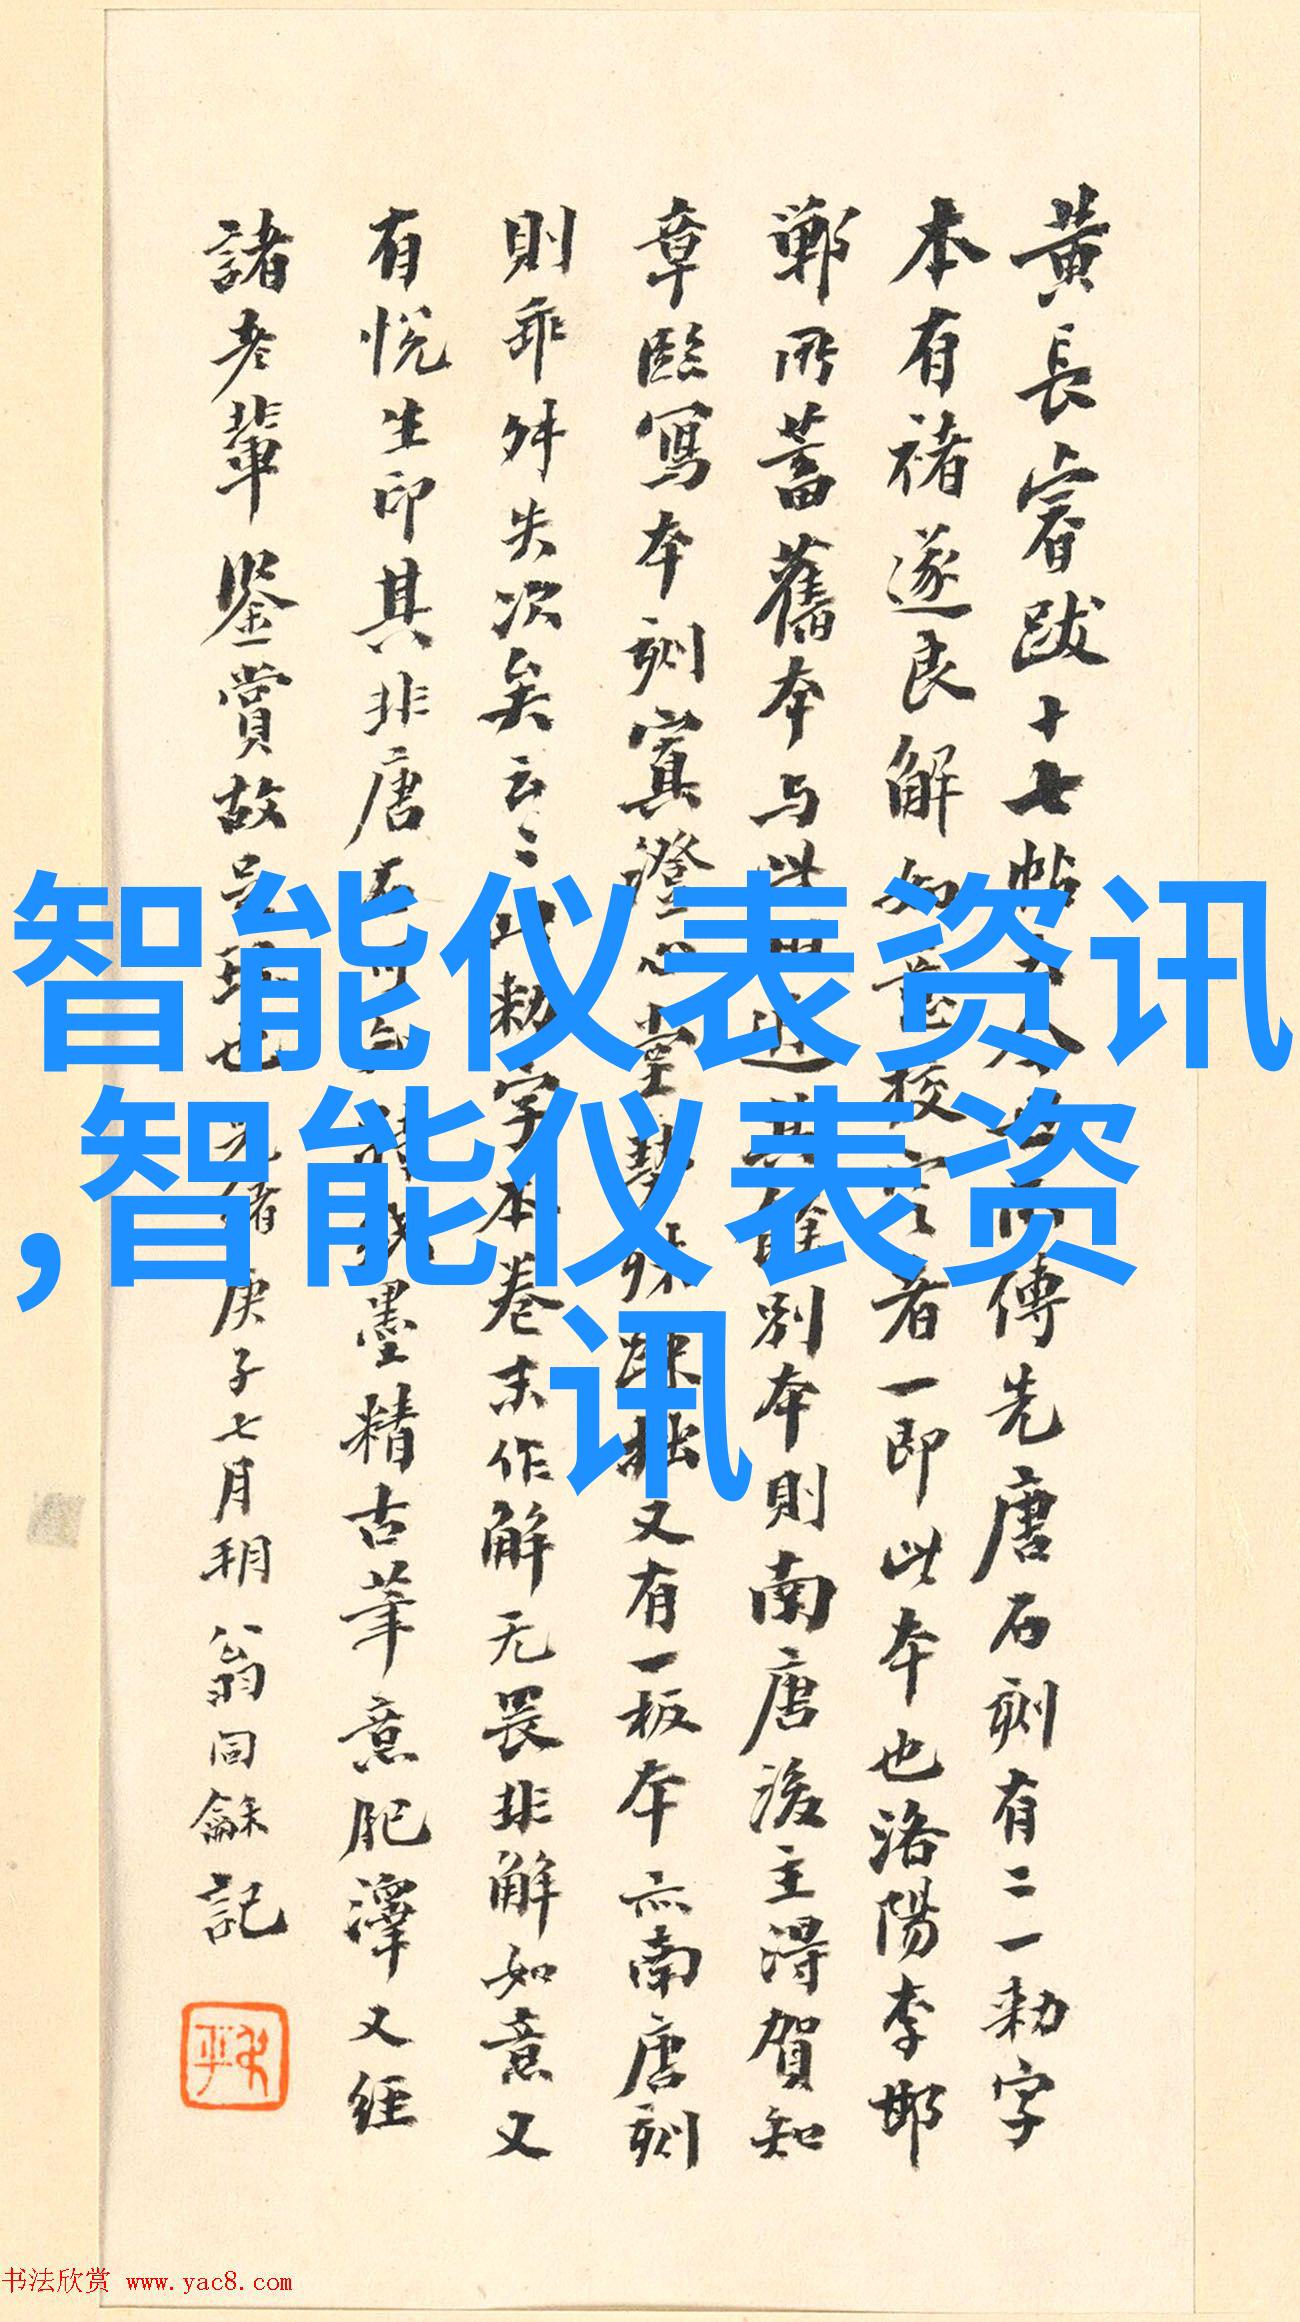 黄長睿跋十七帖
傳先唐石刻有二一勅字
本有褚遂良解如意校
者一即此本也洛陽李邯
鄲所蓄舊本与
别本則南唐後主得賀知
章臨寫本刻寘澄心堂
又有一板本亦南唐刻
則乖舛失次矣云〻此勅字本卷末作解无畏非解如意又
有悦生印其非唐
墨精古筆意肥澤又經
諸老輩鑒賞故
庚子七月朔翁同龢記
智能仪表资讯
,智能仪表资
讯
书法欣赏 www.yac8.com